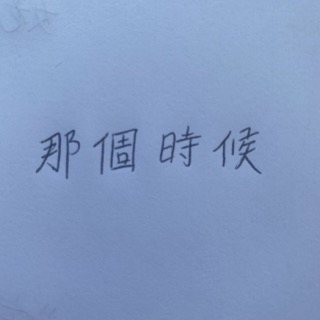 那個時候